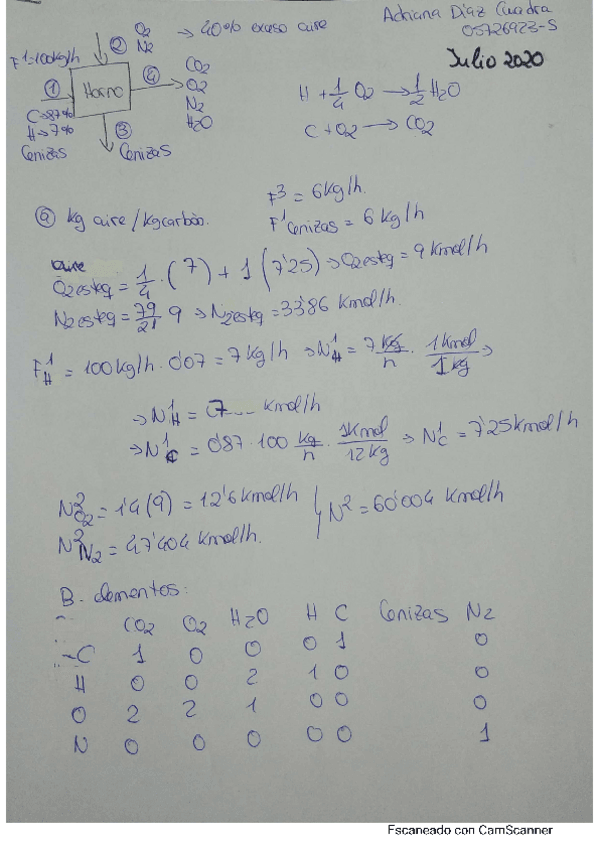 Adriana Díaz Cuadra
05726923-S
Julio 2020
O2
N2
→ 40% exceso aire
F1=100kg/h
②
④
CO2
O2
N2
H2O
① Horno
C→87%
H→7%
Cenizas
③
Cenizas
H + 1/4 O2 → 1/2 H2O
C + O2 → CO2
F3 = 6kg/h.
ⓐ kg aire/kg carbón.
F1 cenizas = 6 kg/h
O2esteq = 1/4 · (7) + 1 (7'25) ⇒ O2esteq = 9 kmol/h
N2esteq = 79/21 9 ⇒ N2esteq = 33'86 kmol/h.
F1H = 100kg/h · 0'07 = 7 kg/h ⇒ N1H = 7 kg/h · 1kmol/1kg ⇒
⇒ N1H = 7 kmol/h
⇒ N1C = 0'87 · 100 kg/h · 1kmol/12kg ⇒ N1C = 7'25 kmol/h
N2O2 = 1'4 (9) = 12'6 kmol/h
N2 = 60'004 kmol/h
N2N2 = 47'404 kmol/h.
B. elementos:
CO2 O2 H2O H C Cenizas N2
C 1 0 0 0 1 0
H 0 0 2 1 0 0
O 2 2 1 0 0 0
N 0 0 0 0 0 1
Escaneado con CamScanner